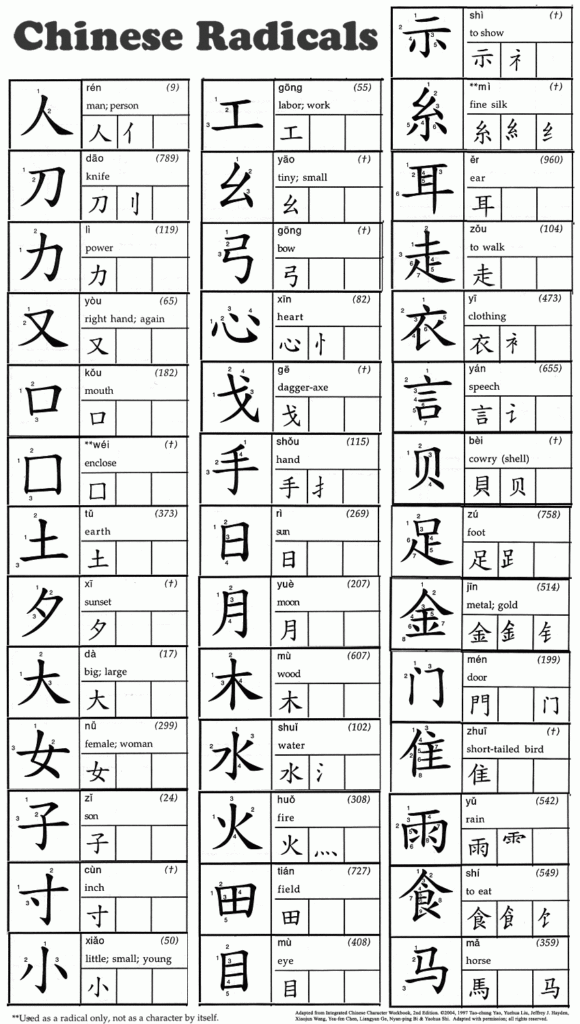 Chinese Radicals
人
rén (9)
man; person
人 亻
刀
dāo (789)
knife
刀 刂
力
lì (119)
power
力
又
yòu (65)
right hand; again
又
口
kǒu (182)
mouth
口
囗
**wéi (†)
enclose
囗
土
tǔ (373)
earth
土
夕
xī (†)
sunset
夕
大
dà (17)
big; large
大
女
nǚ (299)
female; woman
女
子
zǐ (24)
son
子
寸
cùn (†)
inch
寸
小
xiǎo (50)
little; small; young
小
工
gōng (55)
labor; work
工
幺
yāo (†)
tiny; small
幺
弓
gōng (†)
bow
弓
心
xīn (82)
heart
心 忄
戈
gē (†)
dagger-axe
戈
手
shǒu (115)
hand
手 扌
日
rì (269)
sun
日
月
yuè (207)
moon
月
木
mù (607)
wood
木
水
shuǐ (102)
water
水 氵
火
huǒ (308)
fire
火 灬
田
tián (727)
field
田
目
mù (408)
eye
目
示
shì (†)
to show
示 礻
糸
**mì (†)
fine silk
糸 糹 纟
耳
ěr (960)
ear
耳
走
zǒu (104)
to walk
走
衣
yī (473)
clothing
衣 衤
言
yán (655)
speech
言 讠
贝
bèi (†)
cowry (shell)
貝 贝
足
zú (758)
foot
足 ⻊
金
jīn (514)
metal; gold
金 釒 钅
门
mén (199)
door
門 门
隹
zhuī (†)
short-tailed bird
隹
雨
yǔ (542)
rain
雨 ⻗
食
shí (549)
to eat
食 飠 饣
马
mǎ (359)
horse
馬 马
**Used as a radical only, not as a character by itself.
Adapted from Integrated Chinese Character Workbook, 2nd Edition. ©2004, 1997 Tao-chung Yao, Yuehua Liu, Jeffrey J. Hayden,
Xiaojun Wang, Yea-fen Chen, Liangyan Ge, Nyan-ping Bi & Yaohua Shi. Adapted with permission; all rights reserved.